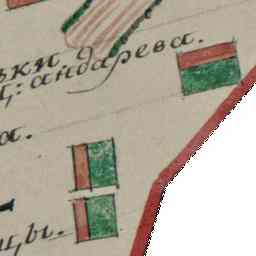 вки
ц: андарева.
а.
цы.